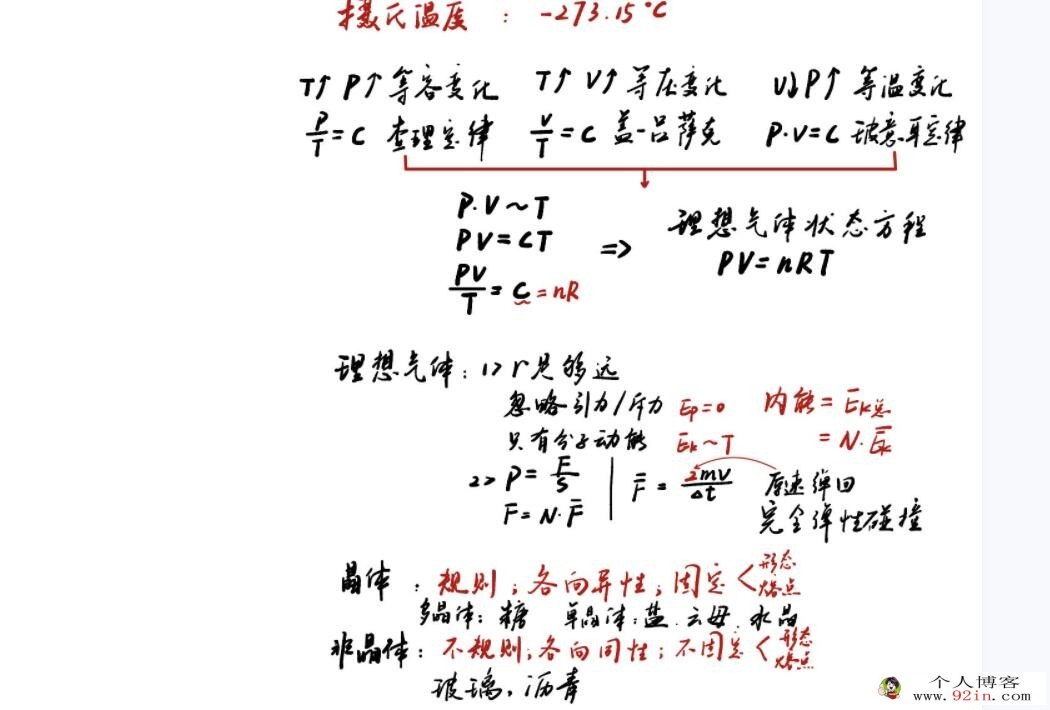 摄氏温度 : -273.15℃
T↑ P↑ 等容变化 T↑ V↑ 等压变化 V↓P↑ 等温变化
P/T = C 查理定律 V/T = C 盖-吕萨克 P·V=C 玻意耳定律
P·V～T
PV=CT => 理想气体状态方程
PV/T = C =nR PV=nRT
理想气体: 1> r足够远
忽略引力/斥力 Ep=0 内能=Ek总
只有分子动能 E̅k～T =N·E̅k
2> P=F/S | F̅ = 2mv/Δt 原速弹回
F=N·F̅ 完全弹性碰撞
晶体 : 规则;各向异性;固定<形态 熔点
多晶体: 糖 单晶体:盐.云母.水晶
非晶体: 不规则;各向同性;不固定<形态 熔点
玻璃,沥青
个人博客
www.92in.com